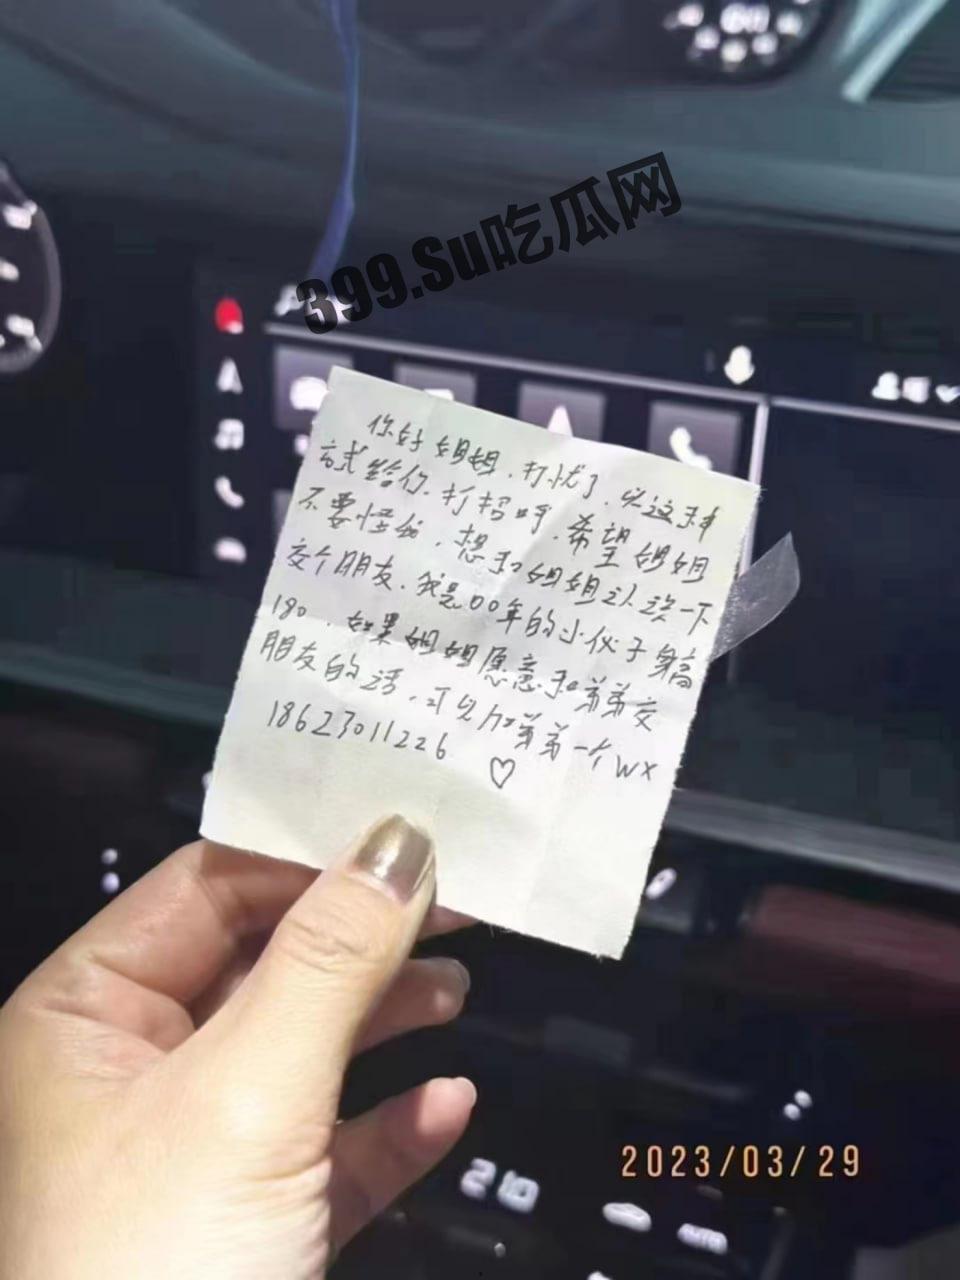 399.Su吃瓜网
你好姐姐，打扰了，以这种
方式给你打招呼，希望姐姐
不要怪我，想和姐姐认识一下
交个朋友，我是00年的小伙子身高
180，如果姐姐愿意和弟弟交
朋友的话，可以加弟弟一个WX
18623011226
♡
2023/03/29
210
AUTO